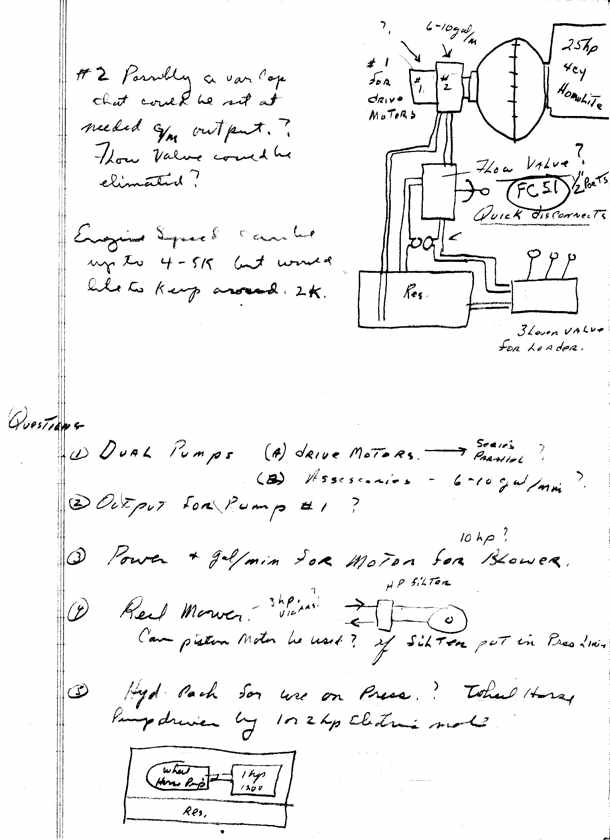 ?
6-10 gal/m
# 1
for
drive
Motors
# 1
# 2
25hp
4cy
Homolite
# 2 Possibly a var Cap
that could be set at
needed g/m output.?
Flow Valve could be
elimatid?
Flow Valve?
FC51
1/2" Ports
Quick disconnects
Engine Speed can be
up to 4-5K but would
like to keep around 2K.
Res.
3 Lever Valve
for Loader.
Questions
① Dual Pumps (A) drive Motors. → Series Parallel ?
(B) Assescories - 6-10 gal/min ?
② Output for Pump #1 ?
10 hp?
③ Power + gal/min for Motor for Blower.
④ Reel Mower. - 3 hp. ?
HP Filter
Can piston Motor be used? w/ Filter put in Pres Line
⑤ Hyd. Pack for use on Press.? Wheel Horse
Pump driven by 1 or 2 hp Electric moto
Wheel
Horse Pump
1 hp
Res.